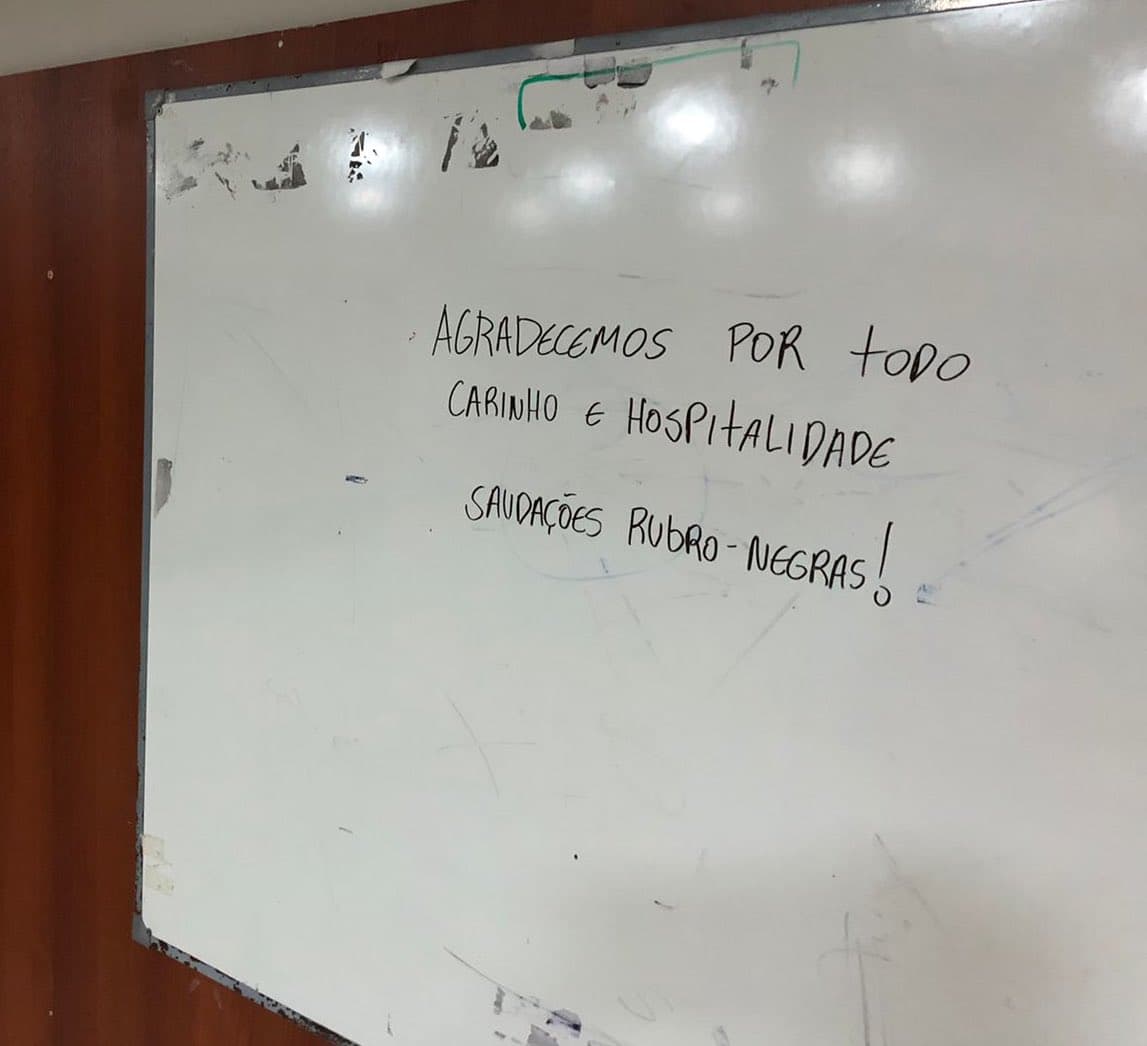 AGRADECEMOS POR TODO
CARINHO E HOSPITALIDADE
SAUDAÇÕES RUBRO-NEGRAS!